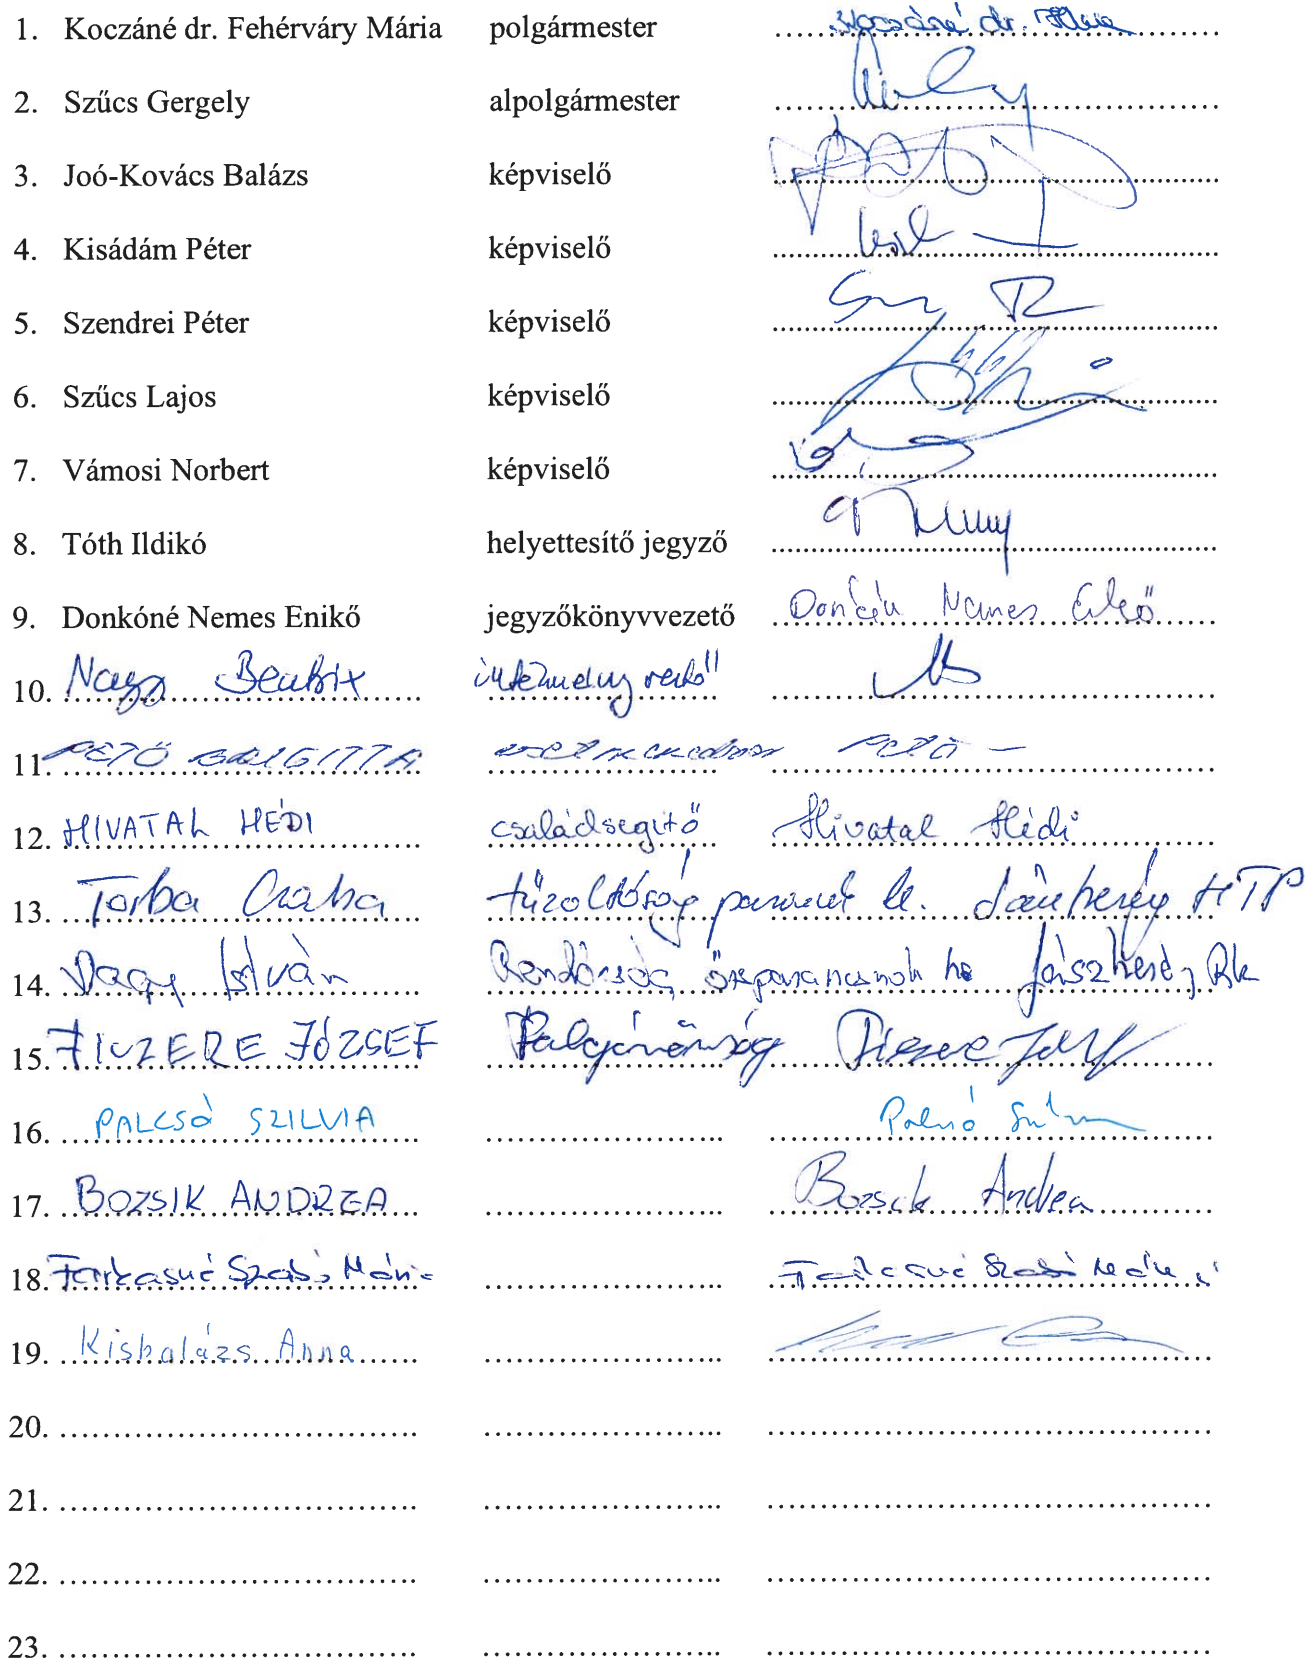 1. Koczáné dr. Fehérváry Mária polgármester Koczáné dr.
2. Szűcs Gergely alpolgármester
3. Joó-Kovács Balázs képviselő
4. Kisádám Péter képviselő
5. Szendrei Péter képviselő
6. Szűcs Lajos képviselő
7. Vámosi Norbert képviselő
8. Tóth Ildikó helyettesítő jegyző
9. Donkóné Nemes Enikő jegyzőkönyvvezető Donkóné Nemes Enikő
10. Nagy Beatrix intézményvezető
11. PETŐ BRIGITTA PETŐ
12. HIVATAL HÉDI családsegítő Hivatal Hédi
13. Torba Csaba tűzoltóság parancsnok h. Jászberény HTP
14. Nagy István Rendőrség őrsparancsnok he Jászberény Rk
15. FICZERE JÓZSEF Polgárőrség Ficzere József
16. PALCSÓ SZILVIA Palcsó Szilvia
17. BOZSIK ANDREA Bozsik Andrea
18. Farkasné Szabó Mária Farkasné Szabó Mária
19. Kisbalázs Anna
20.
21.
22.
23.